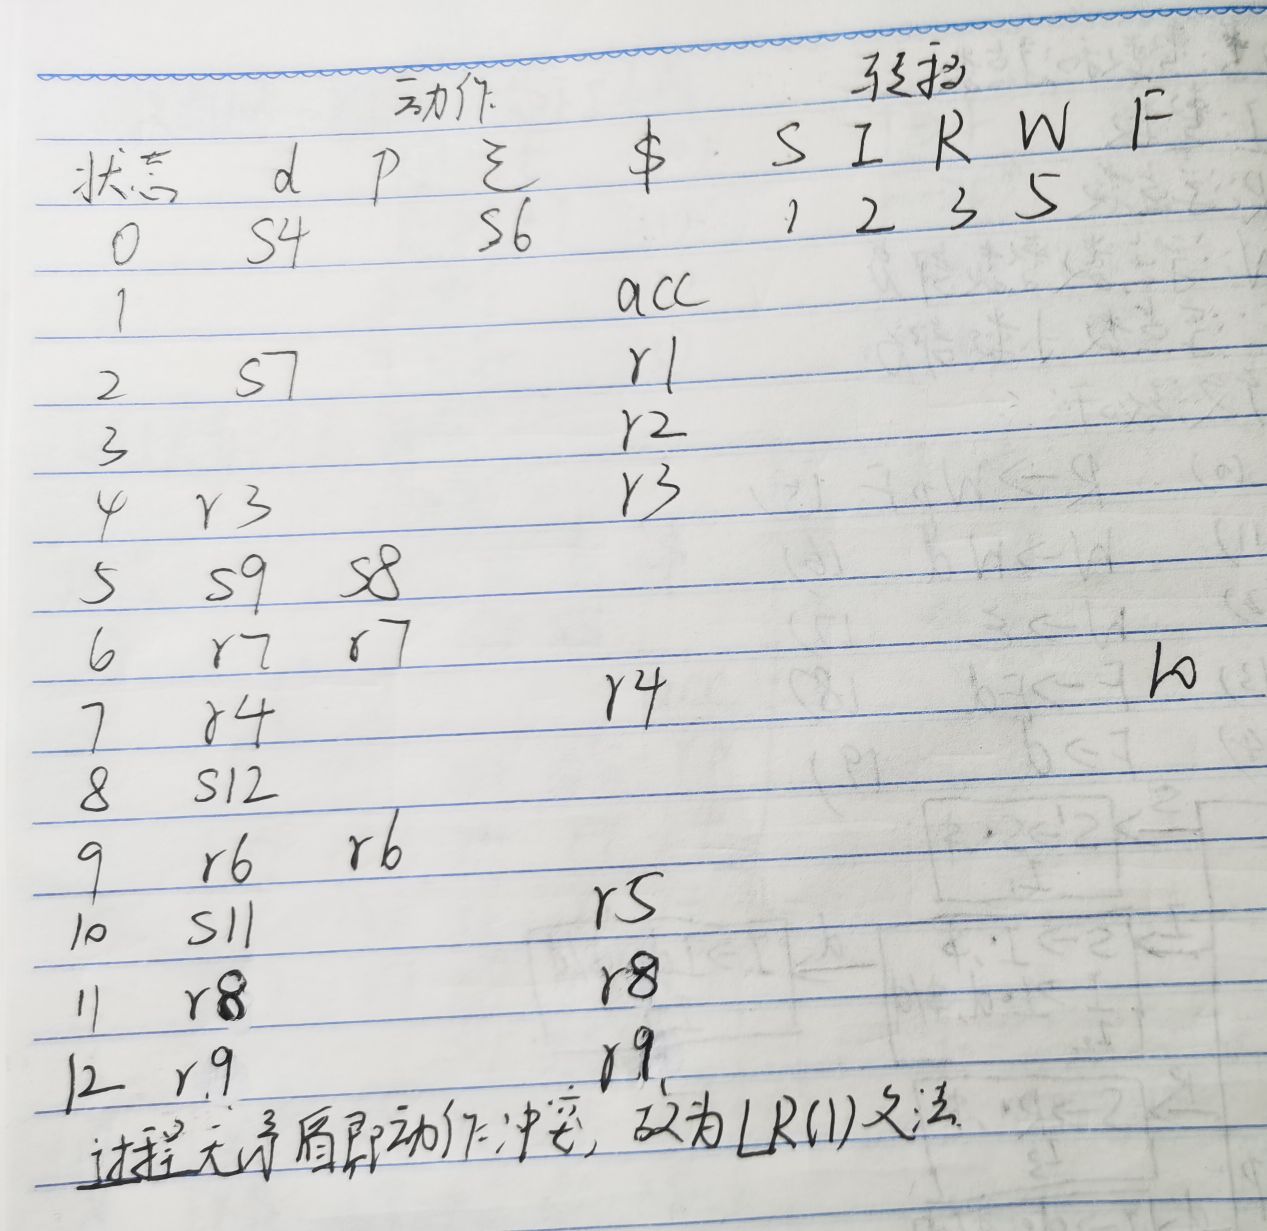 动作 转移
状态 d P Σ $ S I R W F
0 S4 S6 1 2 3 5
1 acc
2 S7 r1
3 r2
4 r3 r3
5 S9 S8
6 r7 r7
7 r4 r4 10
8 S12
9 r6 r6
10 S11 r5
11 r8 r8
12 r9 r9
过程无矛盾即动作冲突,故为LR(1)文法